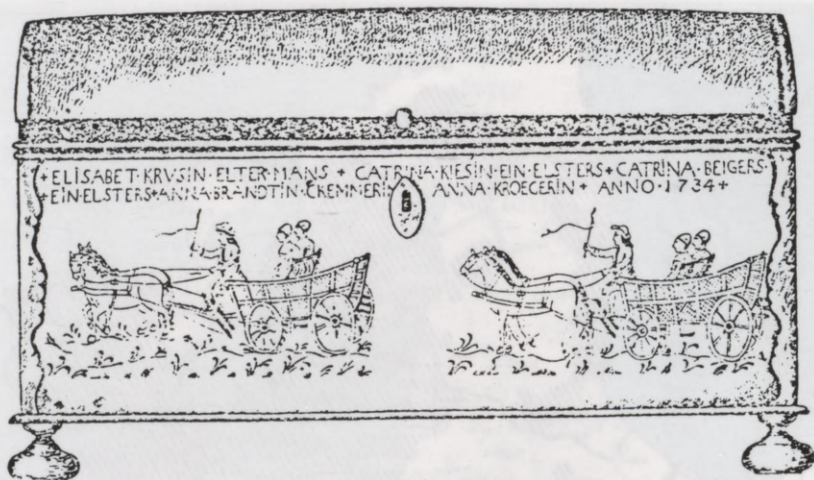 +ELISABET·KRVSIN·ELTER·MANS + CATRINA·KIESIN·EIN·ELSTERS+CATRINA·BEIGERS·
+EIN·ELSTERS+ANNA·BRANDTIN· ANNA·KROECERIN + ANNO·1734+